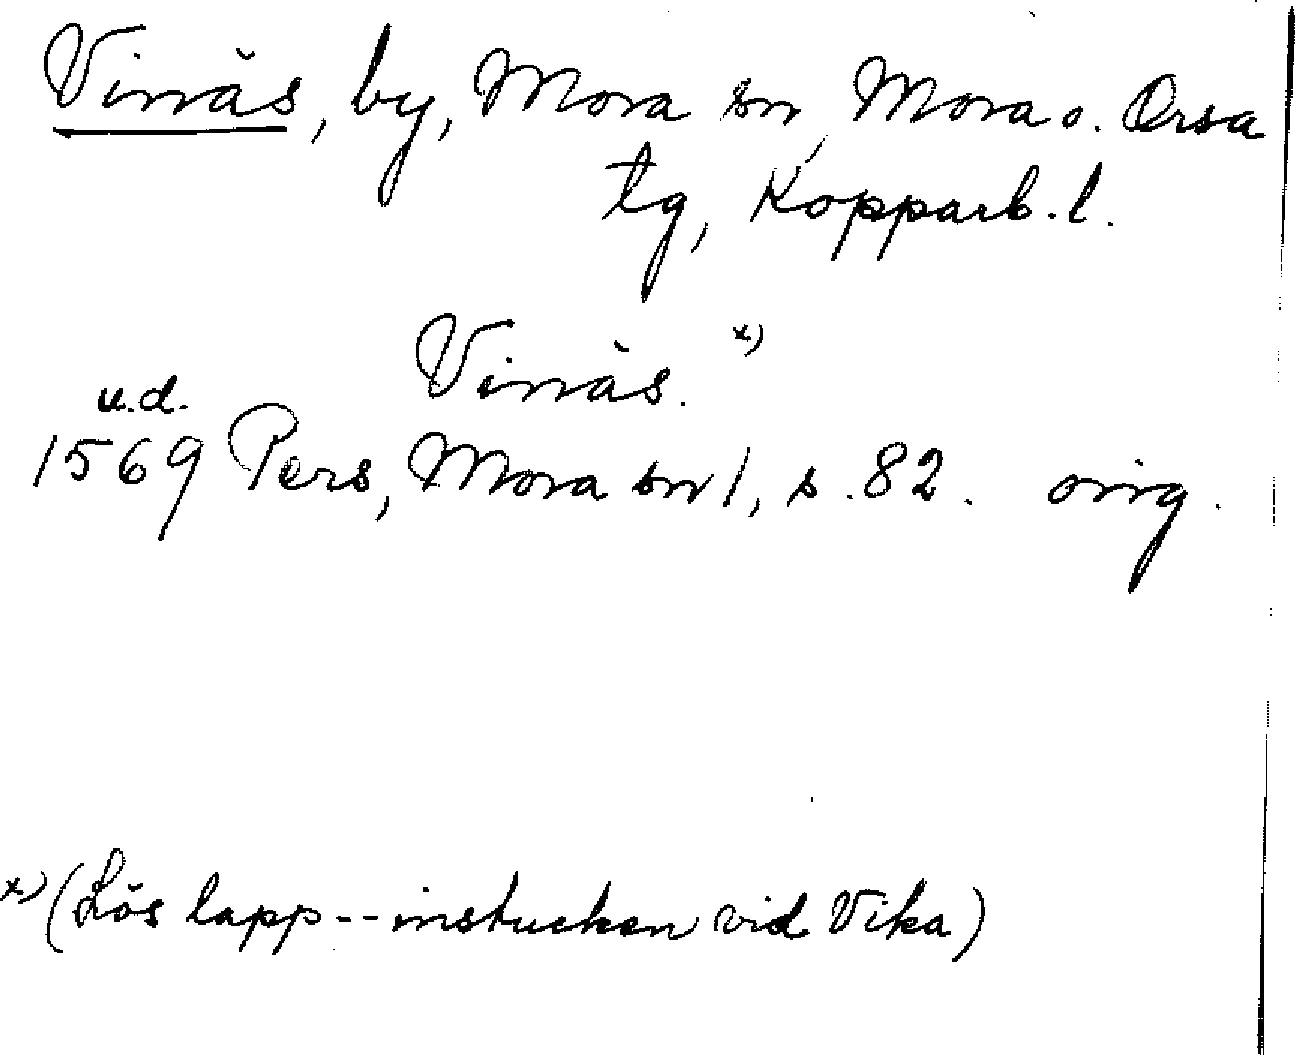 Vinäs, by, Mora sn, Mora o. Orsa
tg, Kopparb. l.
Vinäs. x)
u.d.
1569 Pers, Mora sn 1, s. 82. orig.
x) (Lös lapp -- instucken vid Vika)